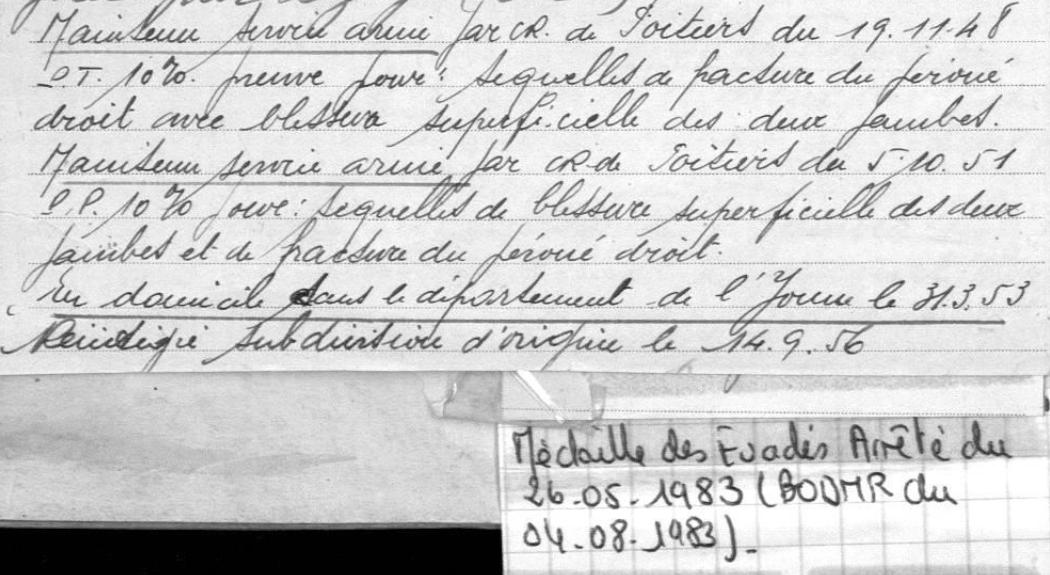 Maintenu service armé par CR. de Poitiers du 19.11.48
P.T. 10%. preuve pour: sequelles de fracture du péroné
droit avec blessure superficielle des deux jambes.
Maintenu service armé par CR de Poitiers du 5.10.51
P.P. 10% pour: sequelles de blessure superficielle des deux
jambes et de fracture du péroné droit.
domicile dans le département de l'Yonne le 31.3.53
Réintégré subdivision d'origine le 14.9.56
Médaille des Evadés Arrêté du
26-05-1983 (BODMR du
04-08-1983)-